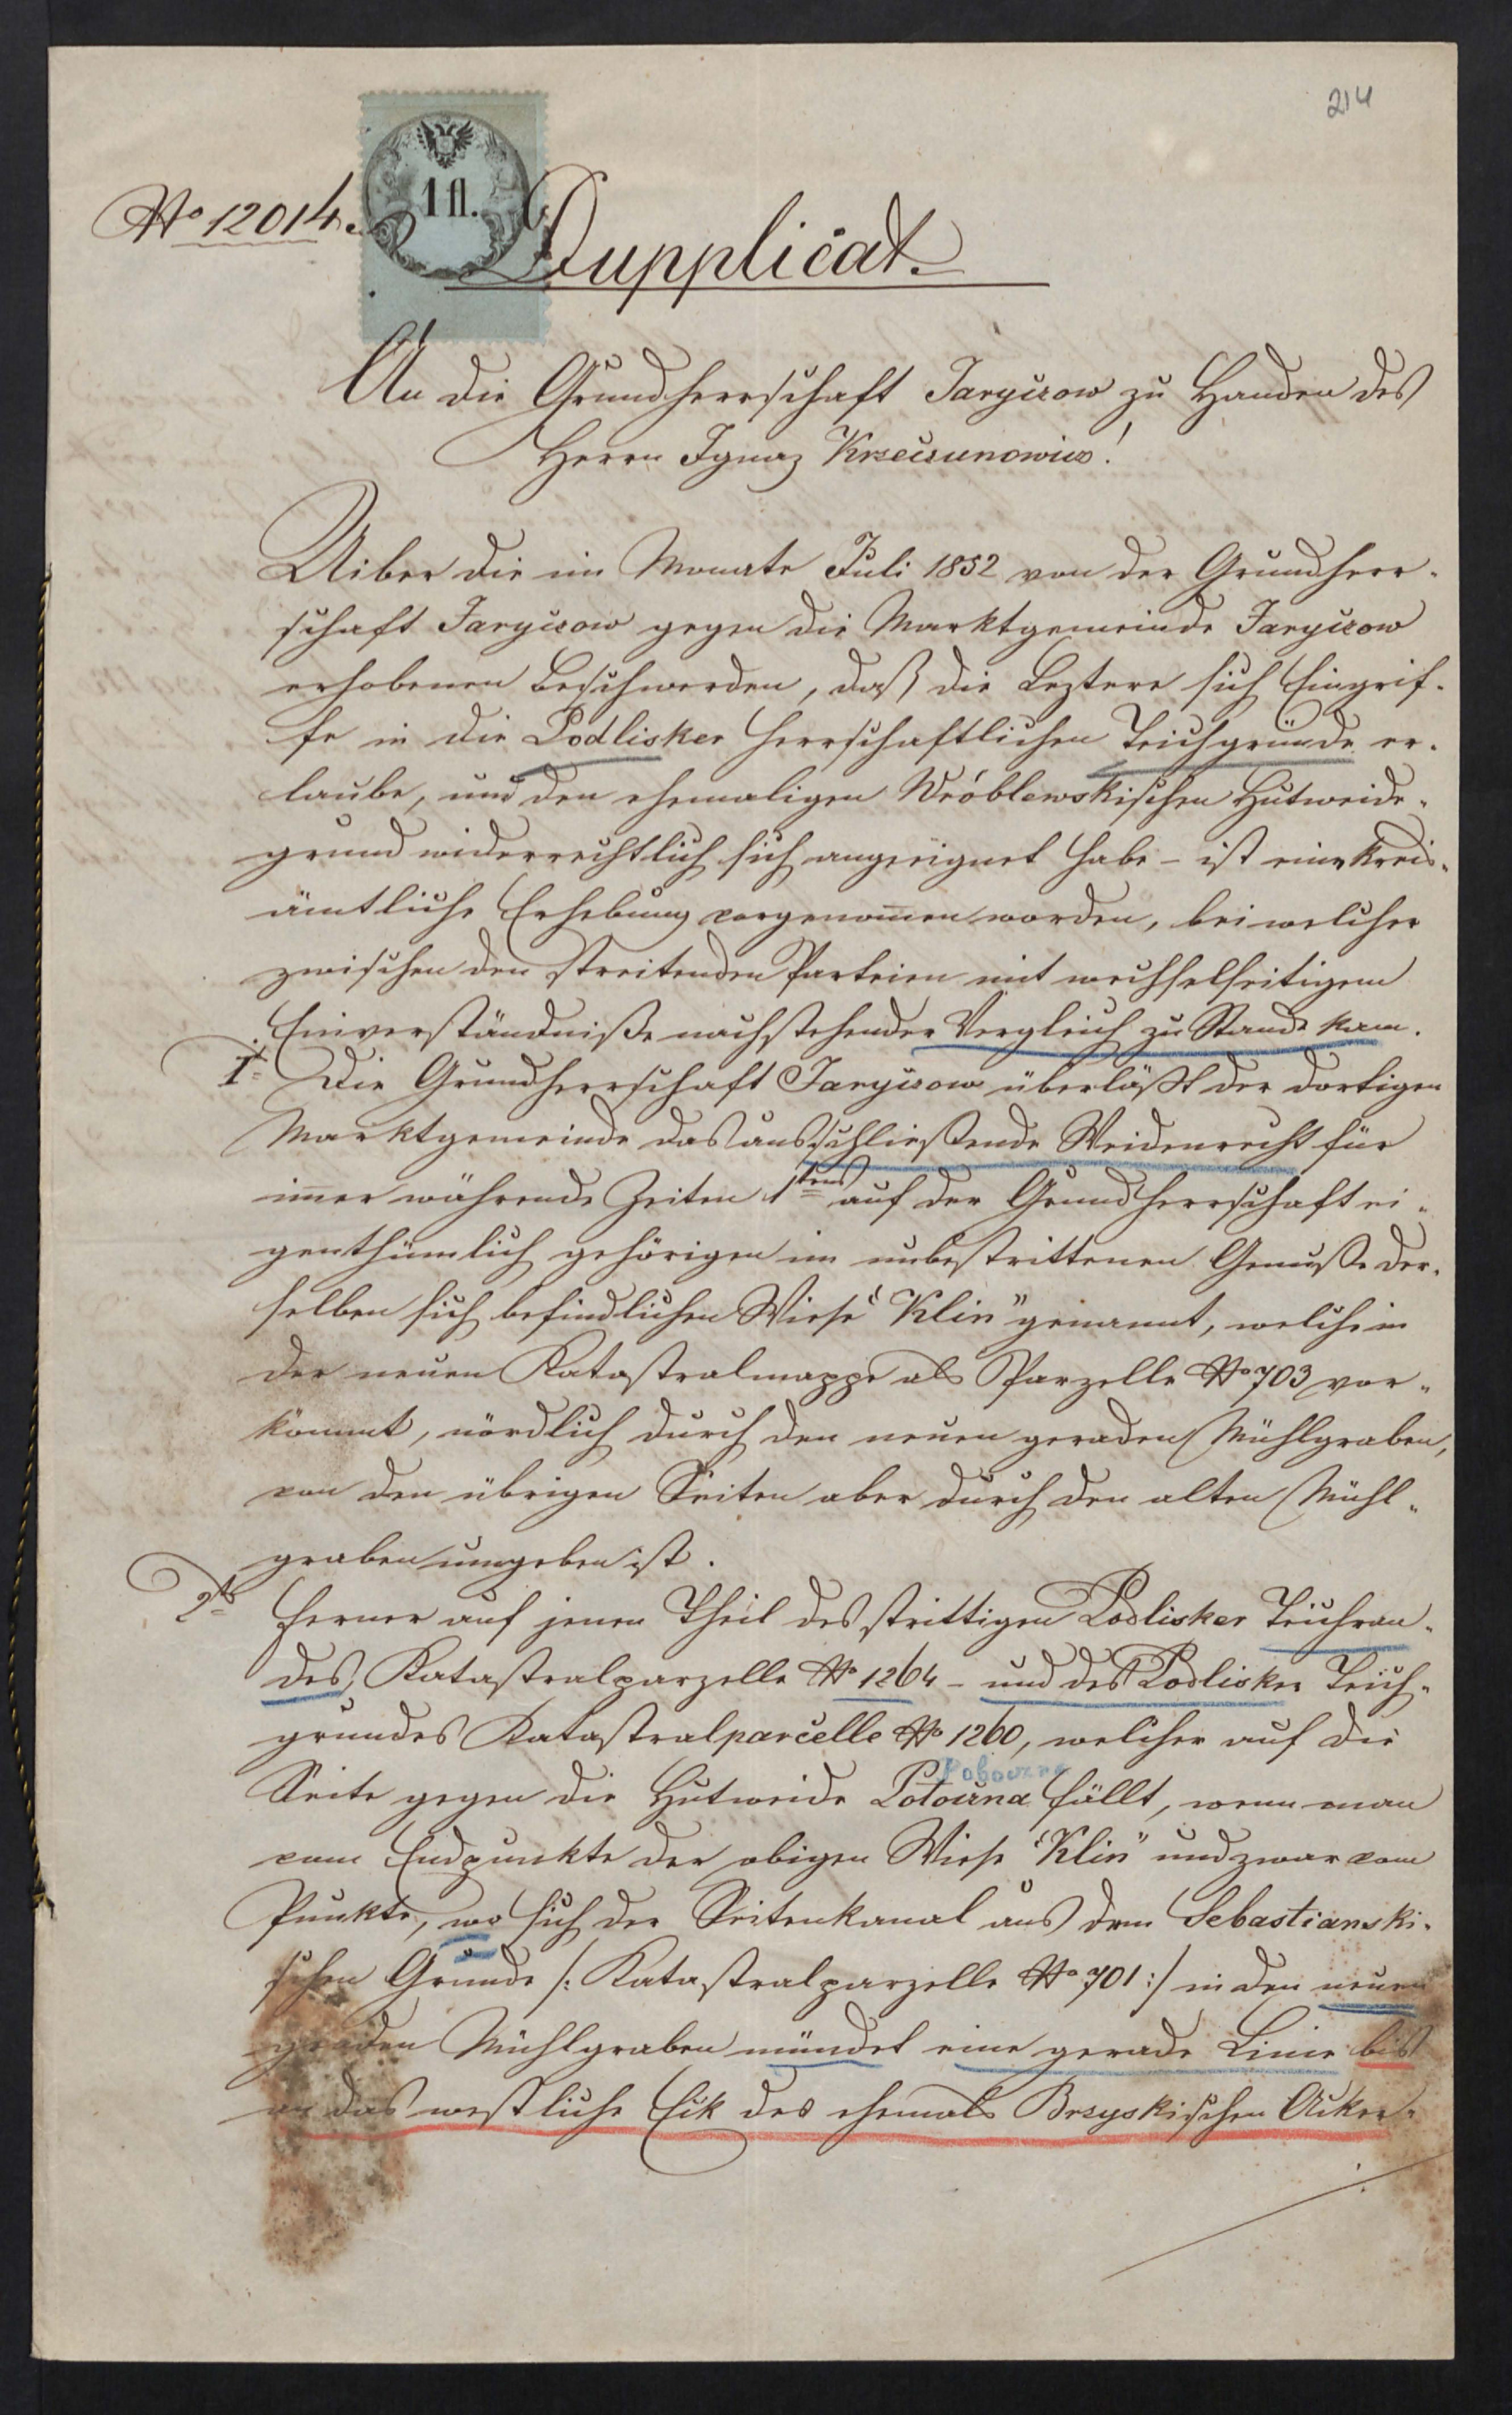 214
No 12014.
1 fl.
Dupplicat.
An die Grundherrschaft Jaryczow zu Handen des
Herrn Ignaz Krzeczunowicz!
Uiber die im Monate Juli 1852 von der Grundherr-
schaft Jaryczow gegen die Marktgemeinde Jaryczow
erhobenen Beschwerden, daß die Leztere sich Eingrif-
fe in die Podlisker herrschaftlichen Teichgründe er-
laube, und den ehemaligen Wróblewskischen Hutweide-
grund widerrechtlich sich angeeignet habe - ist eine kreis-
ämtliche Erhebung vorgenomen worden, bei welcher
zwischen den streitenden Parteien mit wechselseitigem
Einverständniße nachstehender Vergleich zu Stande kam.
1. Die Grundherrschaft Jaryczow überläßt der dortigen
Marktgemeinde das ausschließende Weidenrecht für
imer währende Zeiten 1tens auf der Grundherrschaft ei-
genthümlich gehörigen im unbestrittenen Genuße der-
selben sich befindlichen Wiese "Klin" genannt, welche in
der neuen Katastralmappe als Parzelle No 703 vor-
kömmt, nördlich durch den neuen geraden Mühlgraben,
von den übrigen Seiten aber durch den alten Mühl-
graben umgeben ist.
2t ferner auf jenen Theil des strittigen Podlisker Teichran-
des, Katastralparzelle No 1264 - und des Podlisker Teich-
grundes Katastralparcelle No 1260, welcher auf die
Seite gegen die Hutweide Potoczna fällt, wenn man
vom Endpunkte der obigen Wiese "Klin" und zwar vom
Punkte, wo sich der Seitenkanal aus dem Sebastianski-
schen Grunde /: Katastralparzelle No 701 :/ in den neuen
geraden Mühlgraben mündet eine gerade Linie bis
an das westliche Eck des ehemals Brzyskischen Acker-